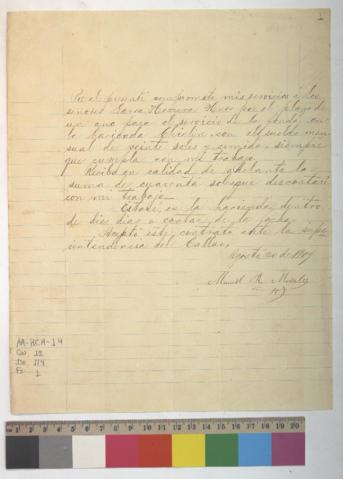 1
Por el presente comprometo mis servicios á los
señores Larco Herrera Hnos por el plazo de
un año para el servicio de la fonda en
la hacienda Chiclin con el sueldo men-
sual de veinte soles y comida siempre
que cumpla con mi trabajo.
Recibo en calidad de adelanto la
suma de cuarenta soles que descontaré
con mi trabajo.
Estaré en la hacienda dentro
de diez dias a contar de la fecha.
Acepto este contrato ante la supe
intendencia del Callao,
Agosto 20 de 1907
Manuel R.
AA-HCH-1.4
Ca. 12
Do. 114
Fs. 1
cm 1 2 3 4 5 6 7 8 9 10 11 12 13 14 15 16 17 18 19 20